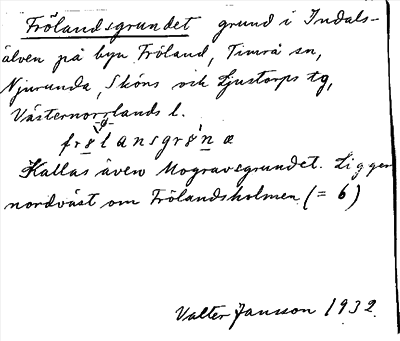 Frölandsgrundet grund i Indals-
älven på byn Fröland, Timrå sn,
Njurunda, Sköns och Ljustorps tg,
Västernorrlands l.
Kallas även Mogravsgrundet. Ligger
nordväst om Frölandsholmen (= 6)
Valter Jansson 1932.